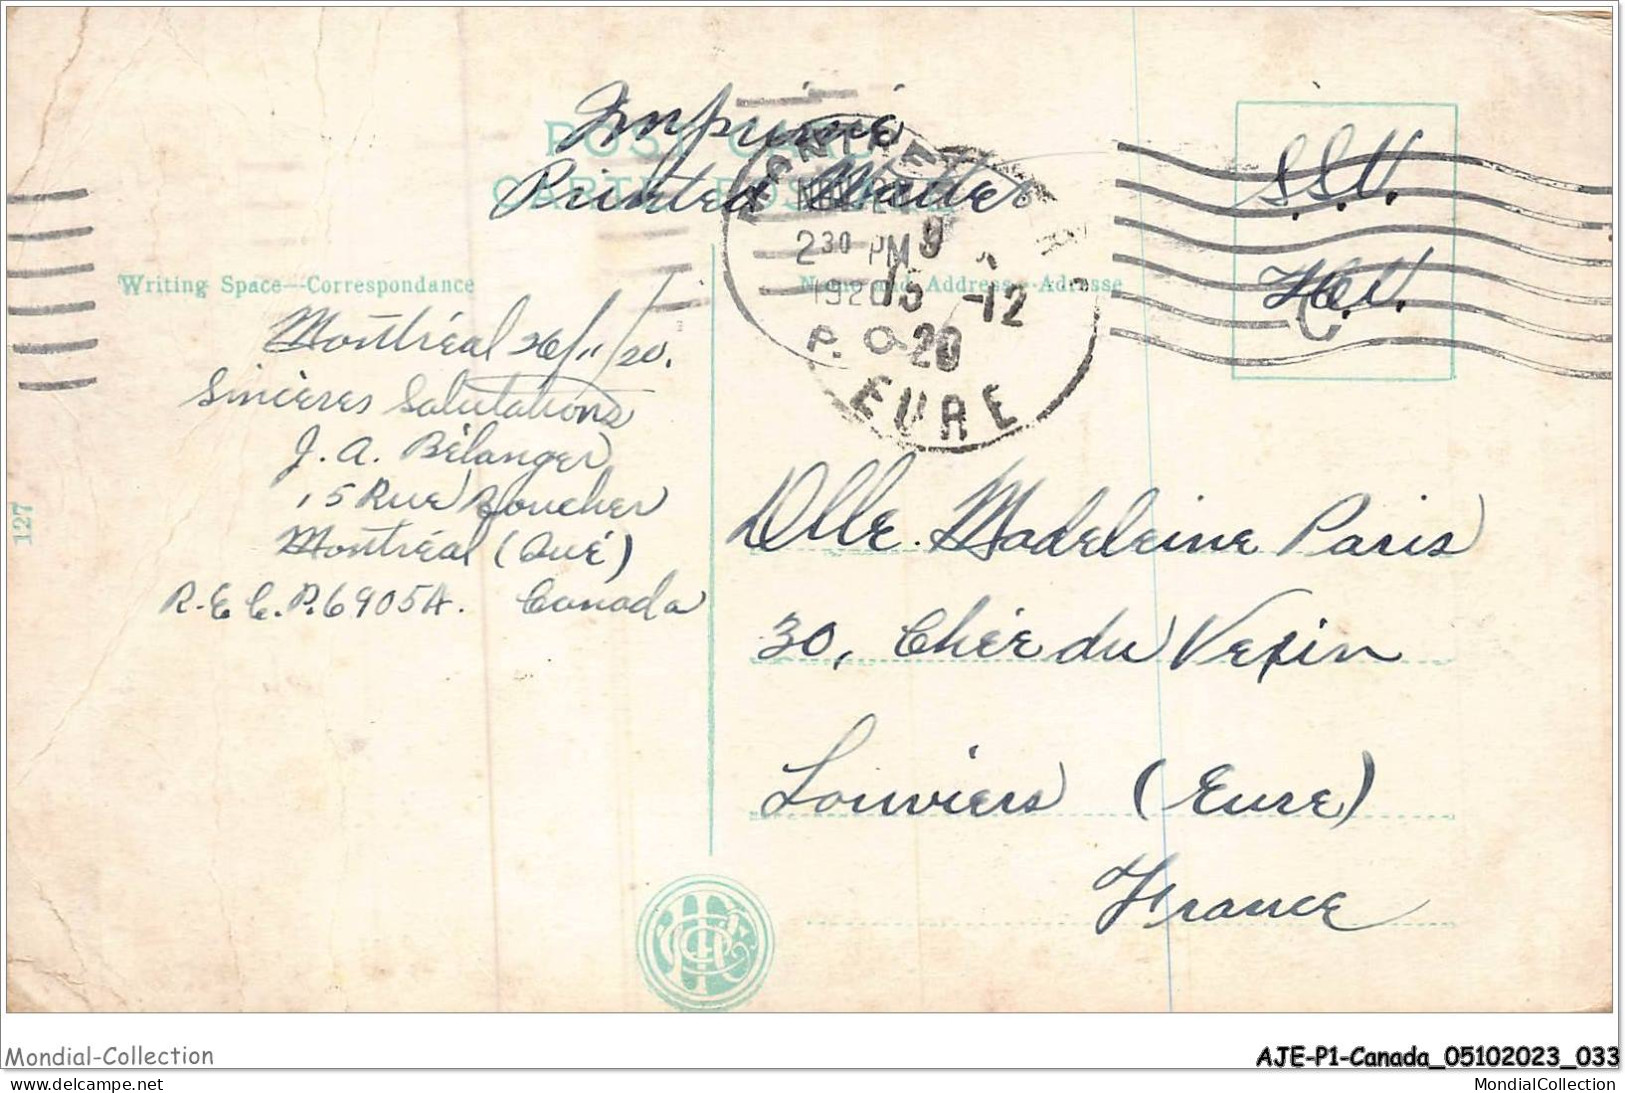 Imprimé
POST CARD
Printed Matter
CARTE POSTALE
MONTREAL
NOV 26
2 30 PM
1920
P. Q.
15 -12
20
EURE
S.S.V.
Writing Space--Correspondance
Name and Address--Adresse
Montréal 26/11/20.
Sincères Salutations
J. A. Bélanger
15 Rue Boucher
Montréal (Qué)
R.E.C.P. 6905A. Canada
127
Dlle. Madeleine Paris
30, Chée du Vexin
Louviers (Eure)
France
Mondial-Collection
AJE-P1-Canada_05102023_033
MondialCollection.net
MondialCollection